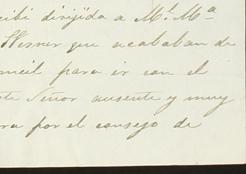 cibi dirijida a Mr. Ma
Werner que acababan de
para ir con el
Señor ausente y muy
ra por el consejo de